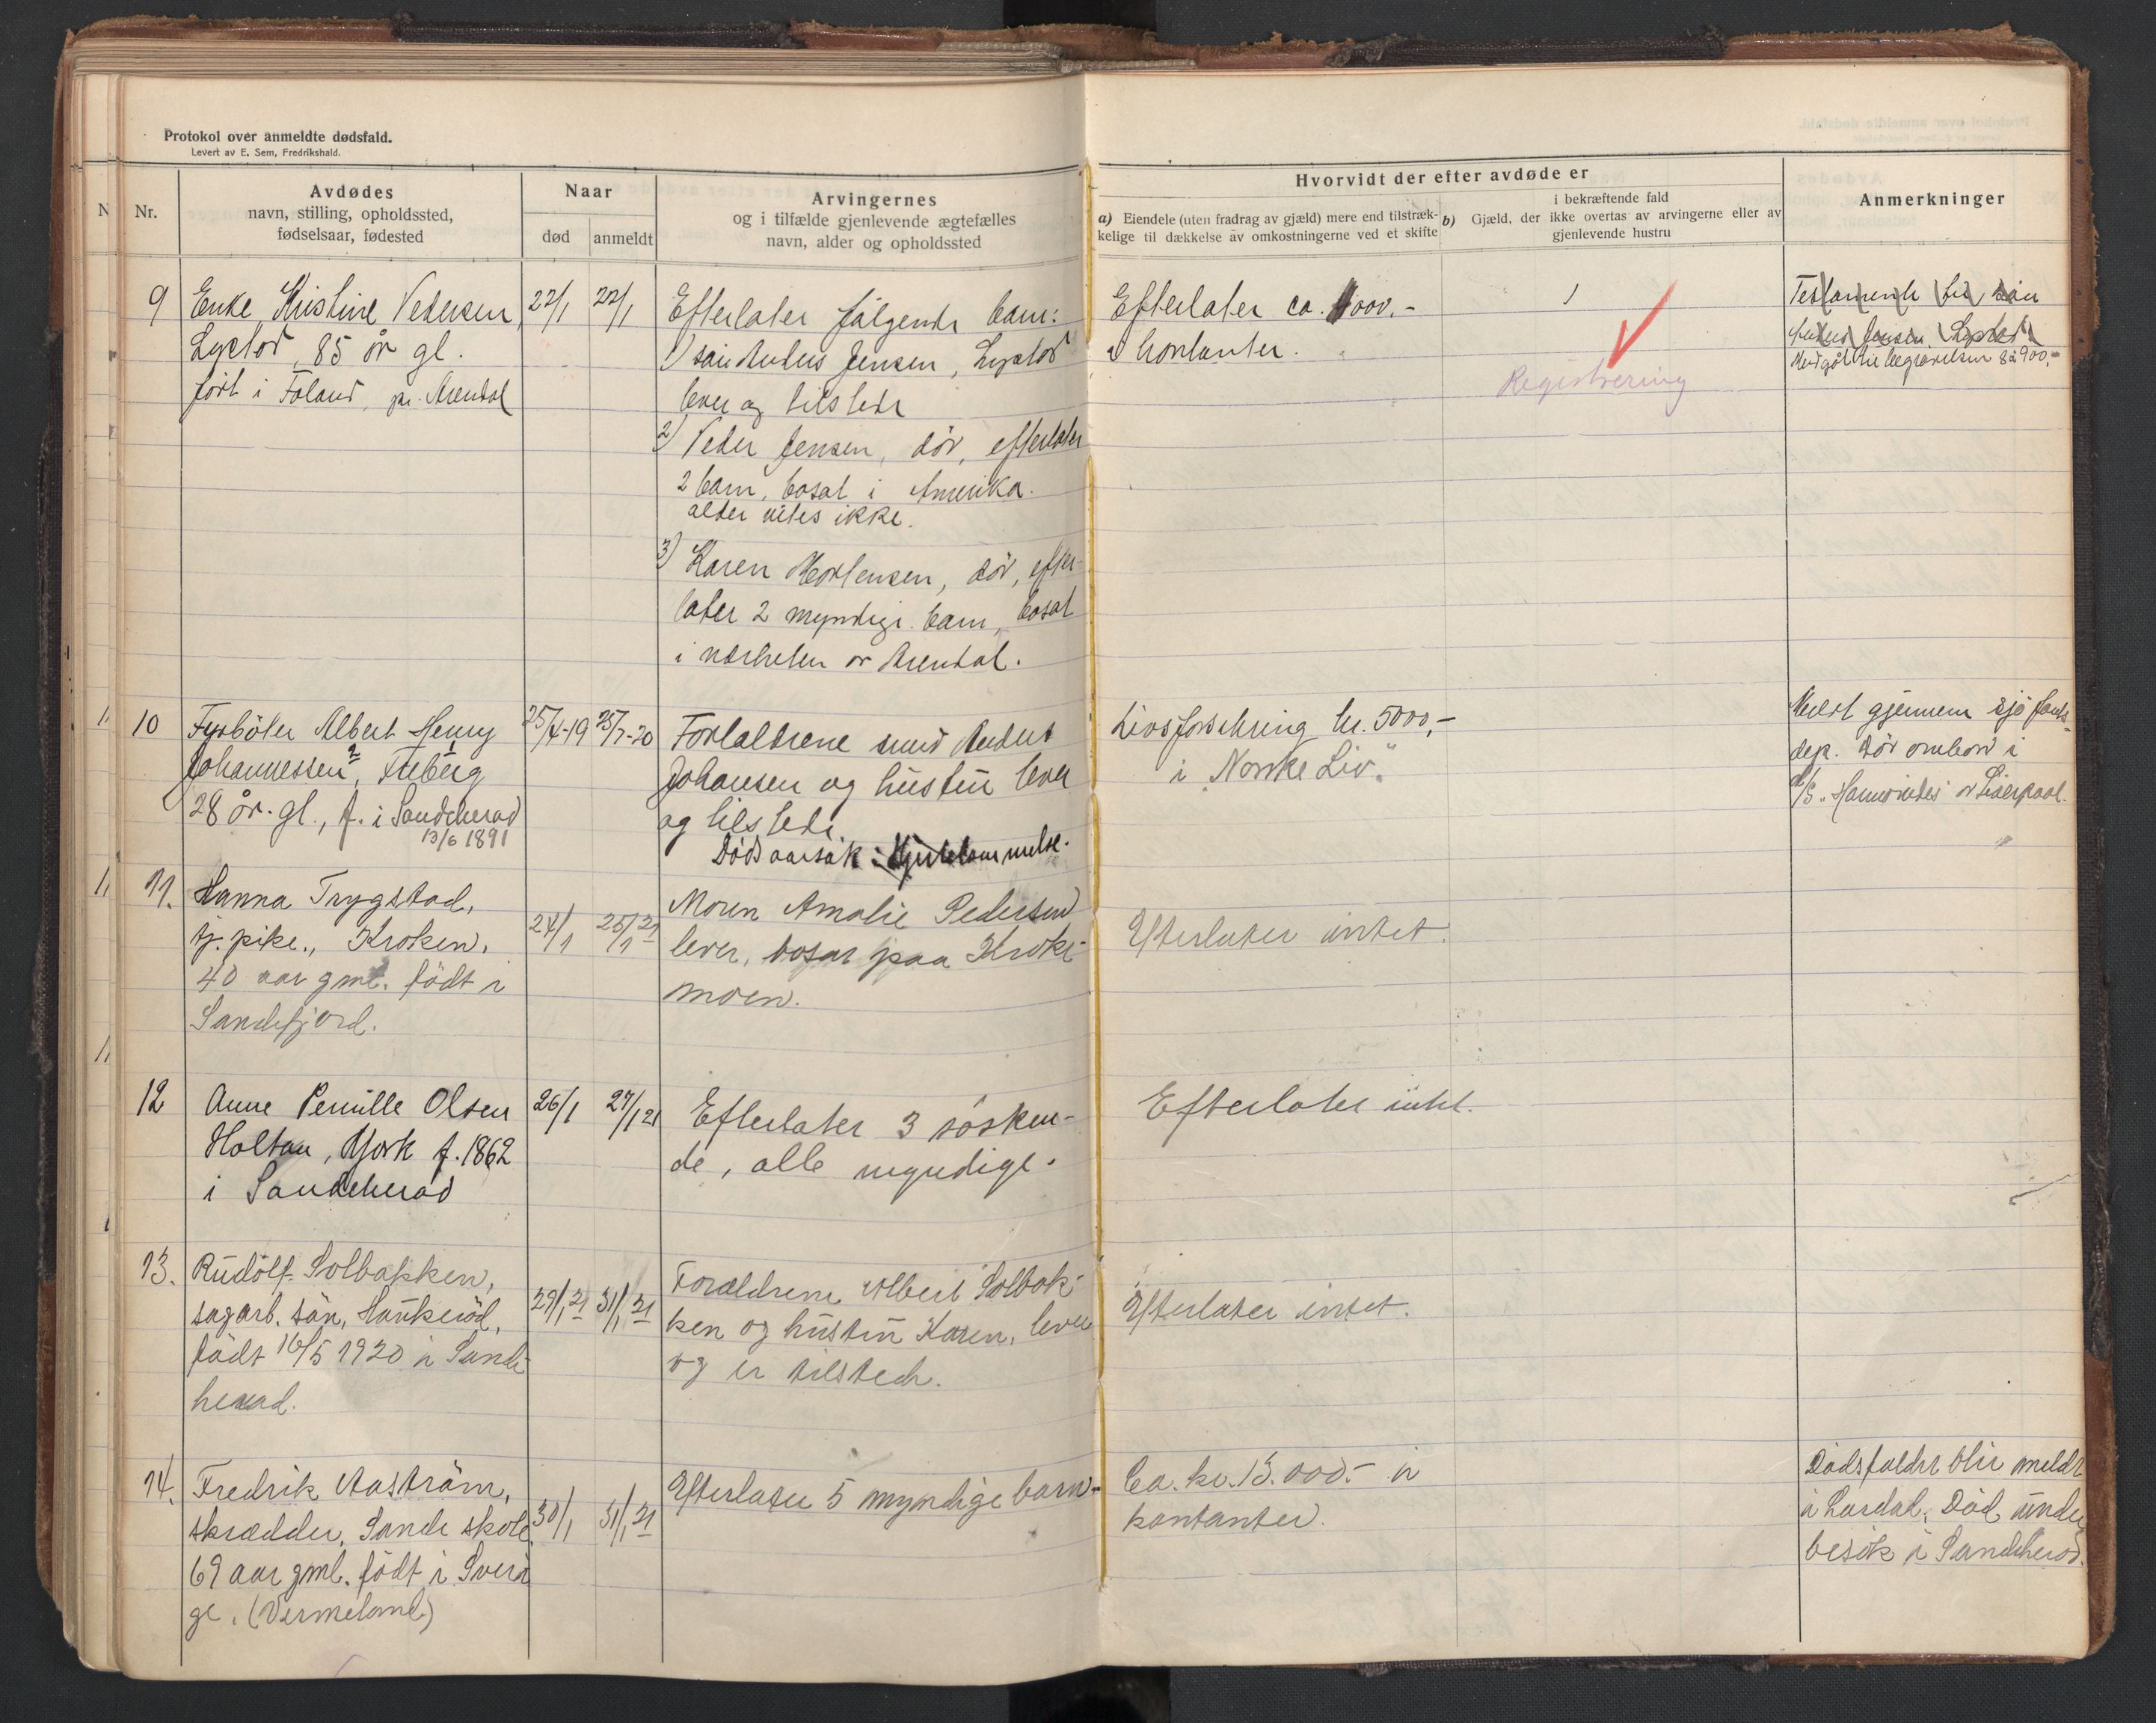 Protokol over anmeldte dødsfald.
Levert av E. Sem, Fredrikshald.
Nr.
Avdødes
navn, stilling, opholdssted,
fødselsaar, fødested
Naar
død
anmeldt
Arvingernes
og i tilfælde gjenlevende ægtefælles
navn, alder og opholdssted
Hvorvidt der efter avdøde er
a) Eiendele (uten fradrag av gjæld) mere end tilstræk-
kelige til dækkelse av omkostningerne ved et skifte
i bekræftende fald
b) Gjæld, der ikke overtas av arvingerne eller av
gjenlevende hustru
Anmerkninger
9
Enke Kristine Pedersen,
85 år gl.
född i Foland, pr. Arendal
22/1
22/1
Efterlater følgende barn:
1) sön Anders Jensen,
lever og tilstede
2) Peder Jensen, död, efterlater
2 barn, bosat i Amerika.
alder vites ikke.
3) Karen Mortensen, död, efter-
later 2 myndige barn, bosat
i nærheten av Arendal.
Efterlater ca.
i kontanter.
Registrering
Testamente til sön
Jensen,
Medgåt til begravelsen 900,-
10
Fyrböter Albert Henry
Johannessen, Freberg
28 år gl., f. i Sandeherad
13/6 1891
25/4-19
25/1-20
Forældrene smed Anders
Johansen og hustru lever
og tilstede.
Dödsaarsak:
Livsforsikring kr. 5000,-
i "Norske Liv".
Meldt gjennem sjöfarts-
dep. Död ombord i
D/S av Liverpool.
11.
Hanna Trygstad,
tj. pike., Kroken,
40 aar gml. födt i
Sandefjord.
24/1
25/1 21
Moren Amalie Pedersen
lever, bosat paa Kroke-
moen.
Efterlater intet.
12
Anne Pernille Olsen
Holtan, Mork f. 1862
i Sandeherad
26/1
27/1 21
Efterlater 3 sösken-
de, alle myndige.
Efterlater intet.
13.
Rudolf Solbakken,
sagarb. sön, Haukeröd,
födt 16/5 1920 i Sande-
herad.
29/1 21
31/1 21
Forældrene Albert Solbak-
ken og hustru Karen, lever
og er tilstede.
Efterlater intet.
14.
Fredrik Aaström,
skrædder, Sande skole
69 aar gml. födt i Sveri-
ge. (Vermeland)
30/1
31/1 21
Efterlater 5 myndige barn.
Ca. kr. 13.000.- i
kontanter.
Dödsfaldet blir meldt
i Lardal. Död under
besök i Sandeherad.